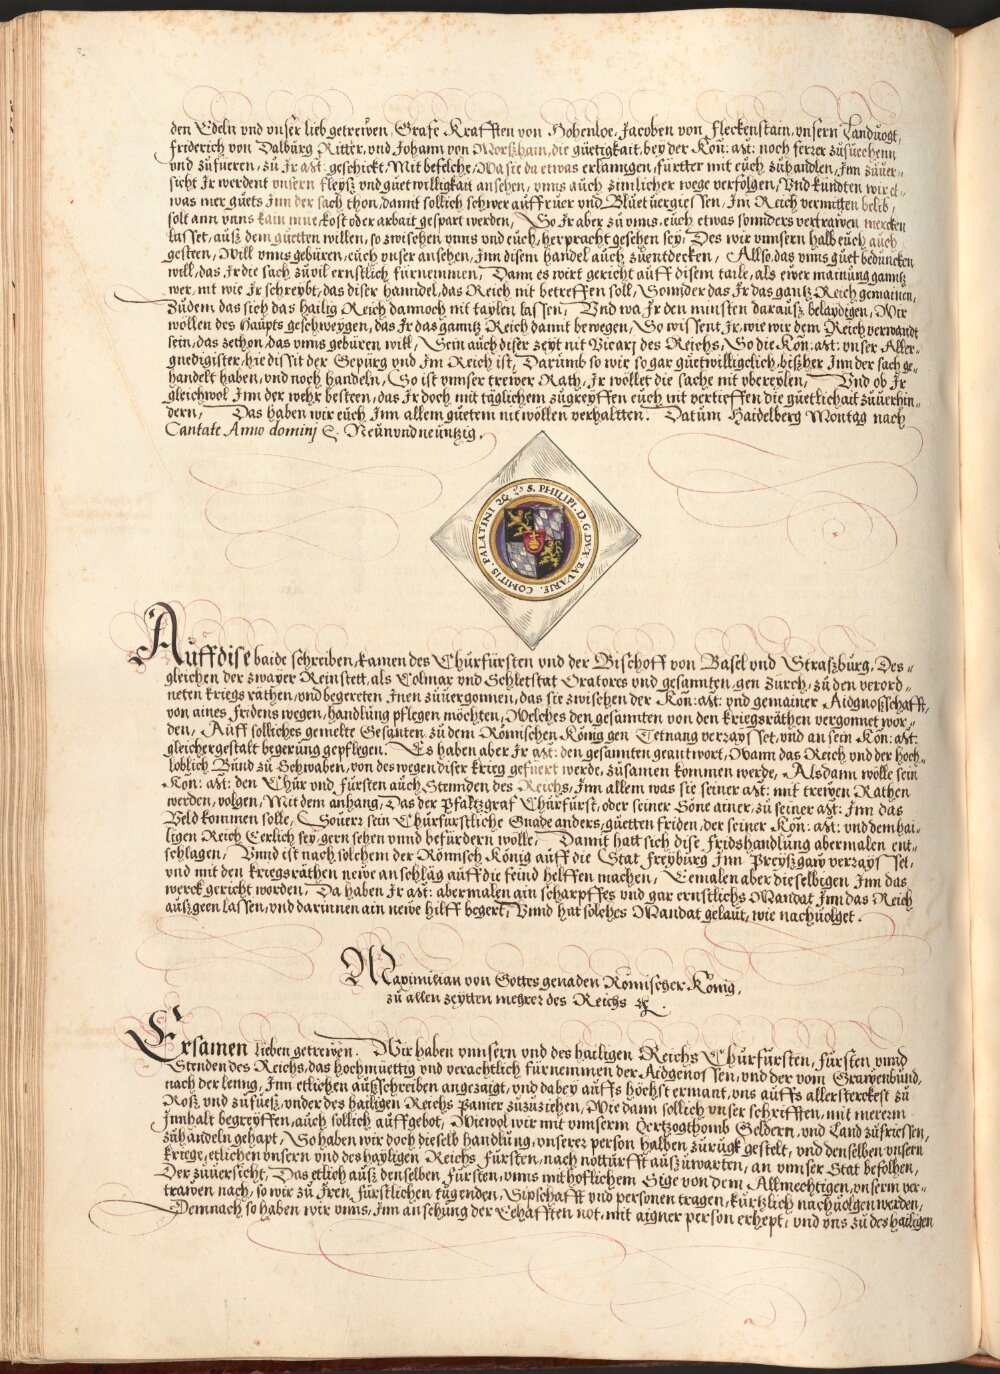 den Edeln vnd vnser lieb getrewen, Grafe Krafften von Hohenloe, Jacoben von Fleckenstain, vnsern Landuogt,
friderich von Dalbürg Ritter, vnd Johann von Morßhain, die güetigkait, bey der Kön: Mt: noch ferrer züsüechenn
vnd züfüeren, zü Jr Mt: geschickt, Mit befelche, Wa sie da etwas erlanngen, fürtter mit eüch zühandlen, Jnn züuer-
sicht Jr werdent vnsern fleysz vnd güetwilligkait ansehen, vnns auch zimlicher wege verfolgen, Vnd kündten wir et-
was mer güets Jnn der sach thon, damit sollich schwer auffrüer vnd Blüetuergiessen, Jm Reich vermitten belib,
solt ann vnns kain müe, kost oder arbait gespart werden, So Jr aber zü vnns, eüch etwas sonnders vertrawen mercken
lasset, aüß dem güetten willen, so zwischen vnns vnd eüch, herpracht geschen sey, Des wir vnnsern halb eüch auch
gesteen, Will vnns gebüren, eüch vnser ansehen, Jnn disem handel auch züentdecken, Allso, das vnns güet bedüncken
will, das Jr die sach züuil ernstlich fürnemmen, Dann es wirt gericht aüff disem taile, als ewer mainüng ganntz
wer, nit wie Jr schreybt, das diser hanndel, das Reich nit betreffen soll, Sonnder das Jr das gantz Reich gemainen,
Züdem das sich das hailig Reich dannoch nit taylen lassen, Vnd wa Jr den minsten daraüsz belaydigen, Wir
wöllen des Haüpts geschweygen, das Jr das ganntz Reich damit bewegen, So wissent Jr, wie wir dem Reich verwandt
sein, das zethon, das vnns gebüren will, Sein aüch diser zeyt nit Vicarj des Reichs, So die Kön: Mt: vnser Aller-
gnedigister, hie dissit der Gepürg vnd Jm Reich ist, Darümb so wir so gar güetwilligclich, bißher Jnn der sach ge-
handelt haben, vnd noch handeln, So ist vnnser trewer Rath, Jr wöllet die sache nit vbereylen, Vnd ob Jr
gleichwol Jnn der wehr besteen, das Jr doch mit täglichem zügreyffen eüch nit vertieffen die güetlichait züuerhin-
dern, Das haben wir eüch Jnn allem güetem nit wöllen verhaltten. Datüm Haidelberg Montag nach
Cantate Anno dominj &. Neünvndneüntzig.
S. PHILIPI. D. G. DVX. BAVARIE. COMITIS. PALATINI
Aüff dise baide schreiben, kamen des Chürfürsten vnd der Bischoff von Basel vnd Straszbürg, Des-
gleichen der zwayer Reinstett, als Colmar vnd Schletstat Oratores vnd gesannten, gen Zürch, zü den verord-
neten kriegs räthen, vnd begereten Jnen züuergonnen, das sie zwischen der Kön: Mt: vnd gemainer Aidgnoßschafft,
von aines fridens wegen, handlüng pflegen möchten, Welches den gesannten von den kriegsräthen vergonnet wor-
den, Auff solliches gemelte Gesanten, zü dem Römischen König gen Tetnang verraysset, vnd an sein Kön: Mt:
gleichergestalt begerüng gepflegen. Es haben aber Jr Mt: den gesannten geantwort, Wann das Reich vnd der hoch-
loblich Bünd zü Schwaben, von des wegen diser krieg gefüert werde, züsamen kommen werde, Alsdann wölle sein
Kön: Mt: den Chür vnd fürsten auch Stennden des Reichs, Jnn allem was sie seiner Mt: mit trewen Rathen
werden, volgen, Mit dem anhang, Das der Pfaltzgraf Chürfürst, oder seiner Söne ainer, zü seiner Mt: Jnn das
Veld kommen solle, Souerr sein Chürfürstliche Gnade anders, güetten friden, der seiner Kön: Mt: vnd dem hai-
ligen Reich Eerlich sey, gern sehen vnnd befürdern wölle, Damit hatt sich dise fridshandlüng abermalen ent-
schlagen, Vnnd ist nach solchem der Römisch König aüff die Stat Freybürg Jnn Preyßgaw verraysset,
vnd mit den kriegsräthen newe anschläg aüff die feind helffen machen, Eemalen aber dieselbigen Jnn das
werck gericht worden, Da haben Jr Mt: abermalen ain scharpffes vnd gar ernstlichs Mandat Jnn das Reich
aüßgeen lassen, vnd darinnen ain newe hilff begert, Vnnd hat solches Mandat gelaüt, wie nachuolget.
Maximilian von Gottes genaden Römischer König,
zü allen zeytten mehrer des Reichs &.
Ersamen lieben getrewen. Wir haben vnnsern vnd des hailigen Reichs Chürfürsten, fürsten vnnd
Stenden des Reichs, das hochmüettig vnd verachtlich fürnemmen der Aidgenossen, vnd der vom Grawenbünd,
nach der lenng, Jnn etlichen aüßschreiben angezaigt, vnd dabey aüffs höchst ermant, vns aüffs allersterckest zü
Roß, vnd zü füesz, vnder des hailigen Reichs Panier züzüziehen, Wie dann sollich vnser schrifften, mit mererm
Jnnhalt begreyffen, aüch sollich aüffgebot, Wiewol wir mit vnnserm Hertzogthomb Geldern, vnd Land züfriessen,
zühandeln gehapt, So haben wir doch dieselb handlüng, vnserer person halben zürügk gestelt, vnd denselben vnsern
kriege, etlichen vnsern vnd des hayligen Reichs fürsten, nach nottürfft aüßzüwarten, an vnnser Stat befolhen,
Der züuersicht, Das etlich aüß denselben fürsten, vnns mit höflichem Sige von dem Allmechtigen, vnserm ver-
trawen nach, so wir zü Jren fürstlichen tügenden, Sipschafft vnd personen tragen, kürtzlich nachuolgen werden,
Demnach so haben wir vnns, Jnn ansehüng der Ehafften not, mit aigner person erhept, vnd vns zü des hailigen